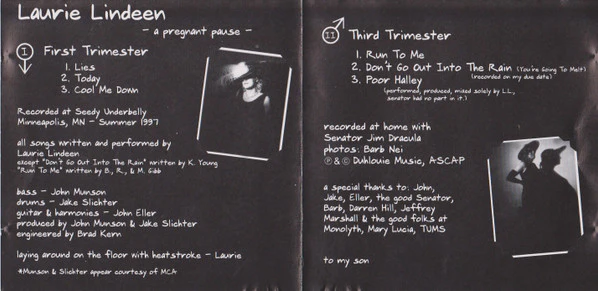 Laurie Lindeen
- a pregnant pause -
I
First Trimester
1. Lies
2. Today
3. Cool Me Down
Recorded at Seedy Underbelly
Minneapolis, MN - Summer 1997
all songs written and performed by
Laurie Lindeen
except "Don't Go Out Into The Rain" written by K. Young
"Run To Me" written by B., R., & M. Gibb
bass - John Munson
drums - Jake Slichter
guitar & harmonies - John Eller
produced by John Munson & Jake Slichter
engineered by Brad Kern
laying around on the floor with heatstroke - Laurie
*Munson & Slichter appear courtesy of MCA
II
Third Trimester
1. Run To Me
2. Don't Go Out Into The Rain (You're Going To Melt)
3. Poor Halley (recorded on my due date)
(performed, produced, mixed solely by L.L.,
senator had no part in it.)
recorded at home with
Senator Jim Dracula
photos: Barb Nei
℗ & © Duhlouie Music, ASCAP
a special thanks to: John,
Jake, Eller, the good Senator,
Barb, Darren Hill, Jeffrey
Marshall & the good folks at
Monolyth, Mary Lucia, TUMS
to my son